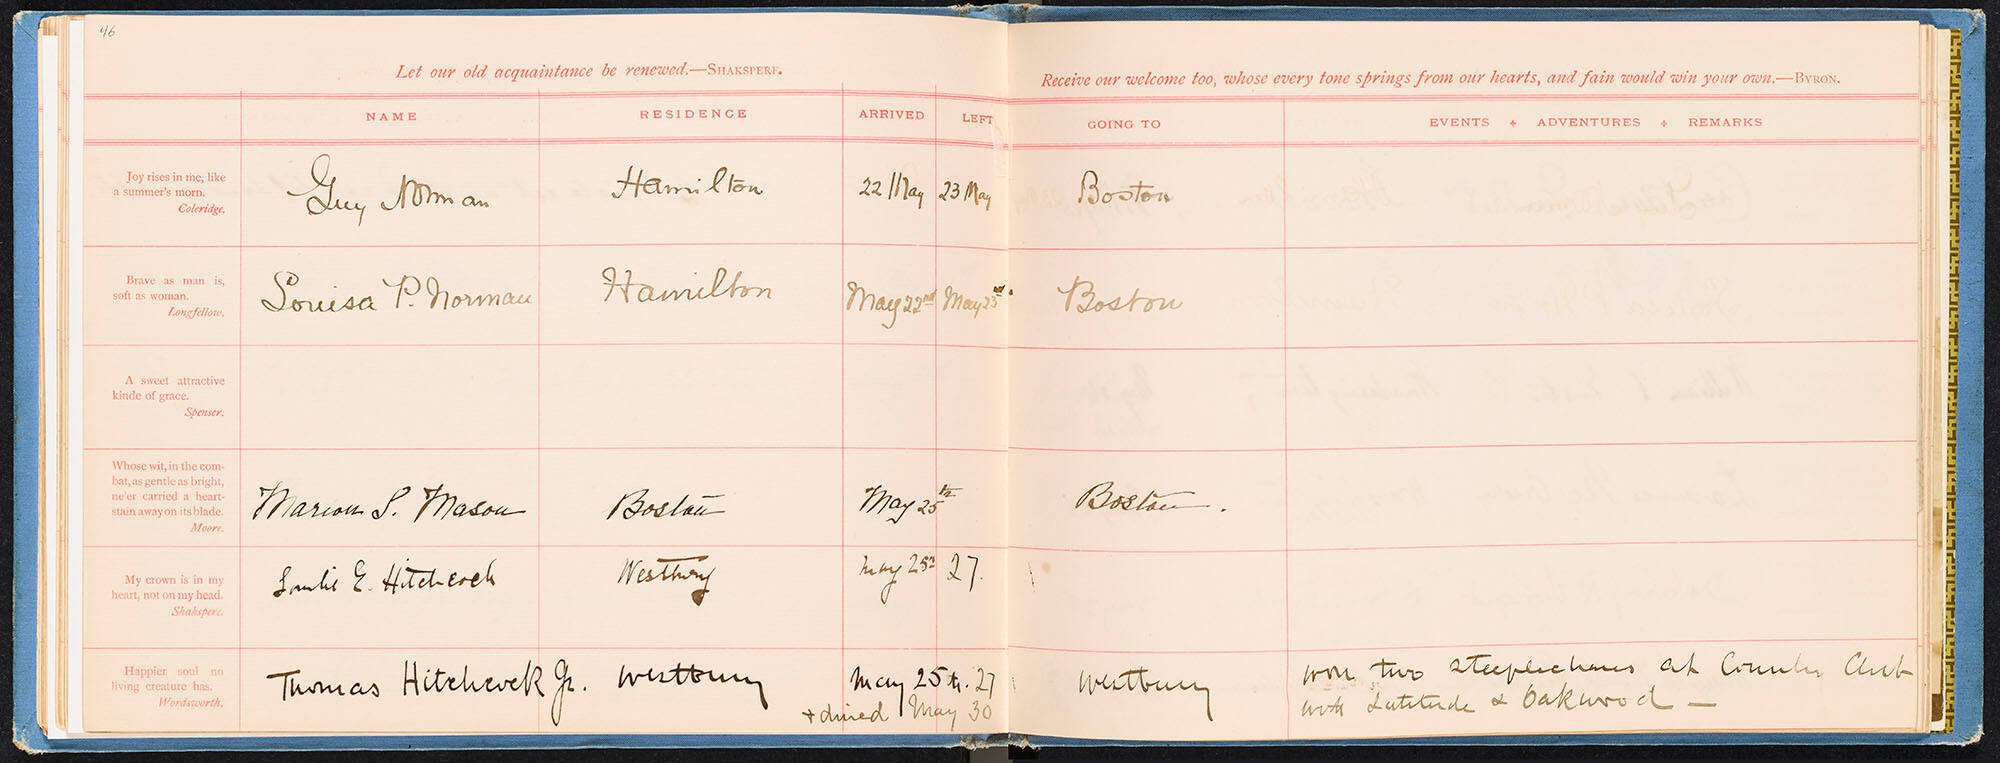 46
Let our old acquaintance be renewed.—SHAKSPERE.
Receive our welcome too, whose every tone springs from our hearts, and fain would win your own.—BYRON.
NAME RESIDENCE ARRIVED LEFT GOING TO EVENTS ✦ ADVENTURES ✦ REMARKS
Joy rises in me, like
a summer's morn.
Coleridge.
Guy Norman Hamilton 22 May 23 May Boston
Brave as man is,
soft as woman.
Longfellow.
Louisa P. Norman Hamilton May 22nd May 23rd. Boston
A sweet attractive
kinde of grace.
Spenser.
Whose wit, in the com-
bat, as gentle as bright,
ne'er carried a heart-
stain away on its blade.
Moore.
Marion S. Mason Boston May 25th Boston.
My crown is in my
heart, not on my head.
Shakspere.
E. Hitchcock Westbury May 25th 27.
Happier soul no
living creature has.
Wordsworth.
Thomas Hitchcock Jr. Westbury May 25th. 27 Westbury won two steeplechases at Country Club
+ dined May 30 with Latitude & Oakwood —